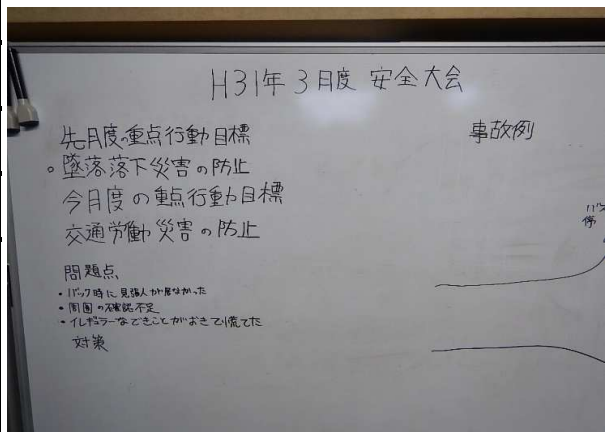 H31年 3月度 安全大会
先月度の重点行動目標
。墜落落下災害の防止
今月度の重点行動目標
交通労働災害の防止
問題点
・バック時に見張人が居なかった
・周囲の確認不足
・イレギュラーなできことがおきて慌てた
対策
事故例
バス
停